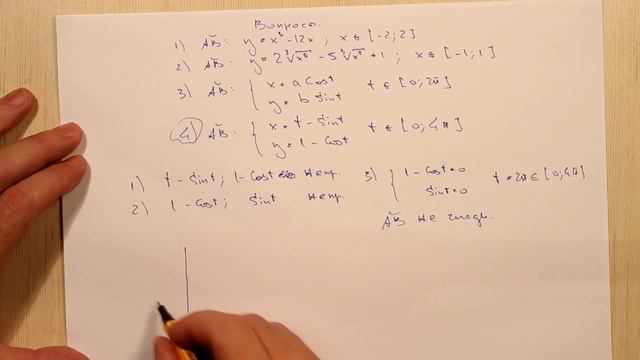 Вопросы.
1) A͝B: y = x³ - 12x ; x ∈ [-2; 2]
2) A͝B: y = 2 ∛x⁵ - 5 ∛x² + 1 ; x ∈ [-1; 1]
3) A͝B: { x = a cost
y = b sint t ∈ [0; 2π]
4) A͝B: { x = t - sint
y = 1 - cost t ∈ [0; 4π]
1) t - sint; 1 - cost непр.
2) 1 - cost; sint непр.
3) { 1 - cost = 0
sint = 0 t = 2π ∈ [0; 4π]
A͝B не гладк.